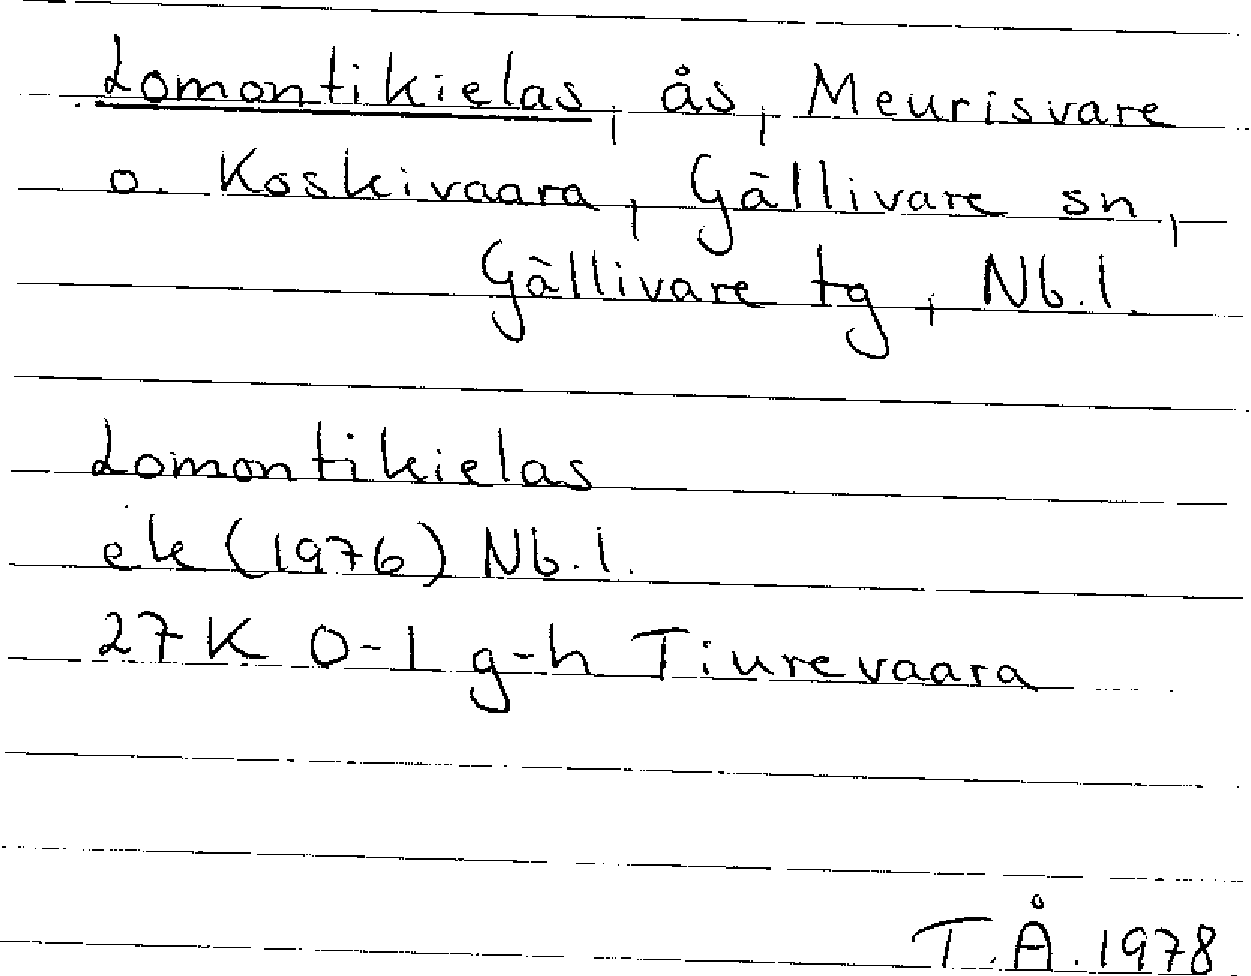 Lomontikielas, ås, Meurisvare
o. Koskivaara, Gällivare sn,
Gällivare tg, Nb.l.
Lomontikielas
ek (1976) Nb.l.
27K 0-1 g-h Tiurevaara
T.Å. 1978